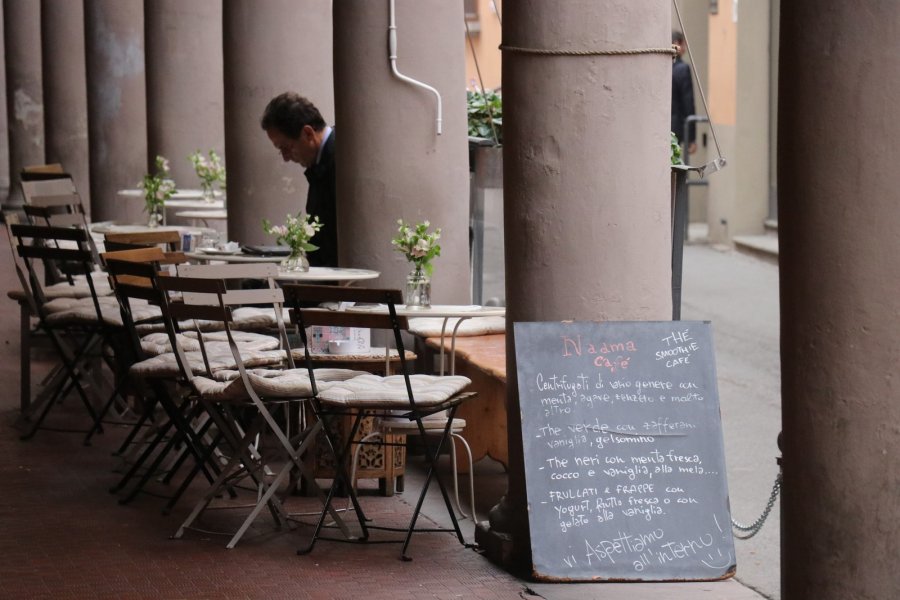 Naama
Café
THE
SMOOTHIE
CAFÉ
Centrifugati di vario genere con
menta, agave, zenzero e molto
altro
- The verde con zafferano
vaniglia, gelsomino
- The neri con menta fresca,
cocco e vaniglia, alla mela....
- FRULLATI e FRAPPE con
yogurt, frutta fresca o con
gelato alla vaniglia.
Vi Aspettiamo
all'interno!